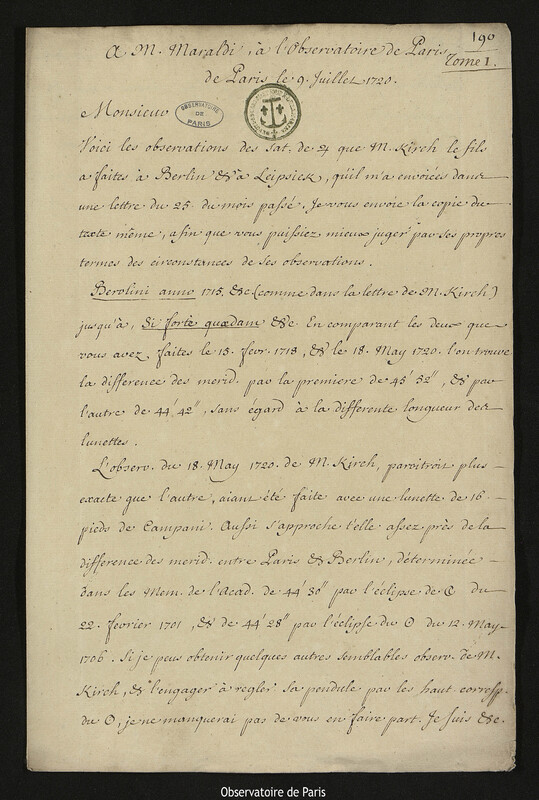 190
A M. Maraldi, à l'Observatoire de Paris
Tome I.
de Paris le 9. Juillet 1720.
Monsieur
OBSERVATOIRE
DE
PARIS
Voici les observations des Sat. de ♃ que M. Kirch le fils
a faites à Berlin & à Leipsick, qu'il m'a envoiées dans
une lettre du 25 du mois passé. Je vous envoie la copie du
texte même, afin que vous puissiez mieux juger par ses propres
termes des circonstances de ses observations.
Berolini anno 1715. &c (comme dans la lettre de M. Kirch)
jusqu'à, Si forte quædam &c. En comparant les deux que
vous avez faites le 15. fevr. 1718, & le 18. May 1720. l'on trouve
la difference des merid. par la premiere de 45' 52", & par
l'autre de 44' 42", sans égard à la differente longueur des
lunettes.
L'observ. du 18. May 1720. de M. Kirch, paroitroit plus
exacte que l'autre, aiant été faite avec une lunette de 16
pieds de Campani. Aussi s'approche t'elle assez près de la
difference des merid. entre Paris & Berlin, déterminée
dans les Mem. de l'Acad. de 44' 30" par l'éclipse de ☾ du
22. fevrier 1701, & de 44' 28" par l'éclipse du ☉ du 12. May
1706. Si je peus obtenir quelques autres semblables observ. de M.
Kirch, & l'engager à regler sa pendule par les haut. corresp.
du ☉, je ne manquerai pas de vous en faire part. Je suis &c.
Observatoire de Paris